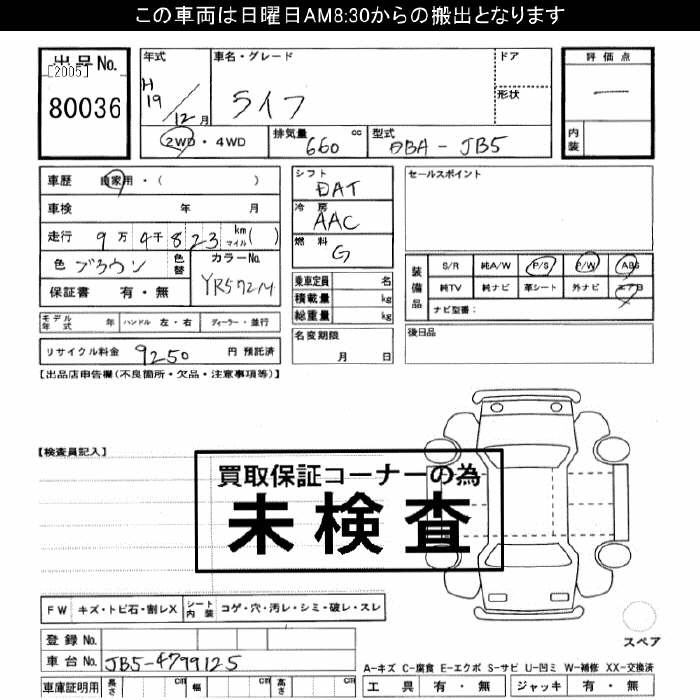 この車両は日曜日AM8:30からの搬出となります
出品No.
[2005]
80036
年式
H19/12月
車名・グレード
ライフ
ドア
形状
評価点
—
内装
2WD・4WD
排気量 660 cc
型式 DBA-JB5
車歴 自家用・( )
車検 年 月
走行 9万4千823 km マイル( )
色 ブラウン 色替
カラーNo. YR572M
保証書 有・無
シフト DAT
冷房 AAC
燃料 G
乗車定員 名
積載量 kg
総重量 kg
セールスポイント
装備品
S/R 純A/W P/S P/W ABS
純TV 純ナビ 革シート 外ナビ エアB
ナビ型番:
モデル年式 年 ハンドル 左・右 ディーラー・並行
名変期限
月 日
後日品
リサイクル料金 9250 円 預託済
【出品店申告欄(不良箇所・欠品・注意事項等)】
【検査員記入】
買取保証コーナーの為
未検査
FW キズ・トビ石・割レX シート内装 コゲ・穴・汚レ・シミ・破レ・スレ
登録No.
車台No. JB5-4799125
スペア
A-キズ C-腐食 E-エクボ S-サビ U-凹ミ W-補修 XX-交換済
車庫証明用 長さ cm 幅 cm 高さ cm
工具 有・無 ジャッキ 有・無